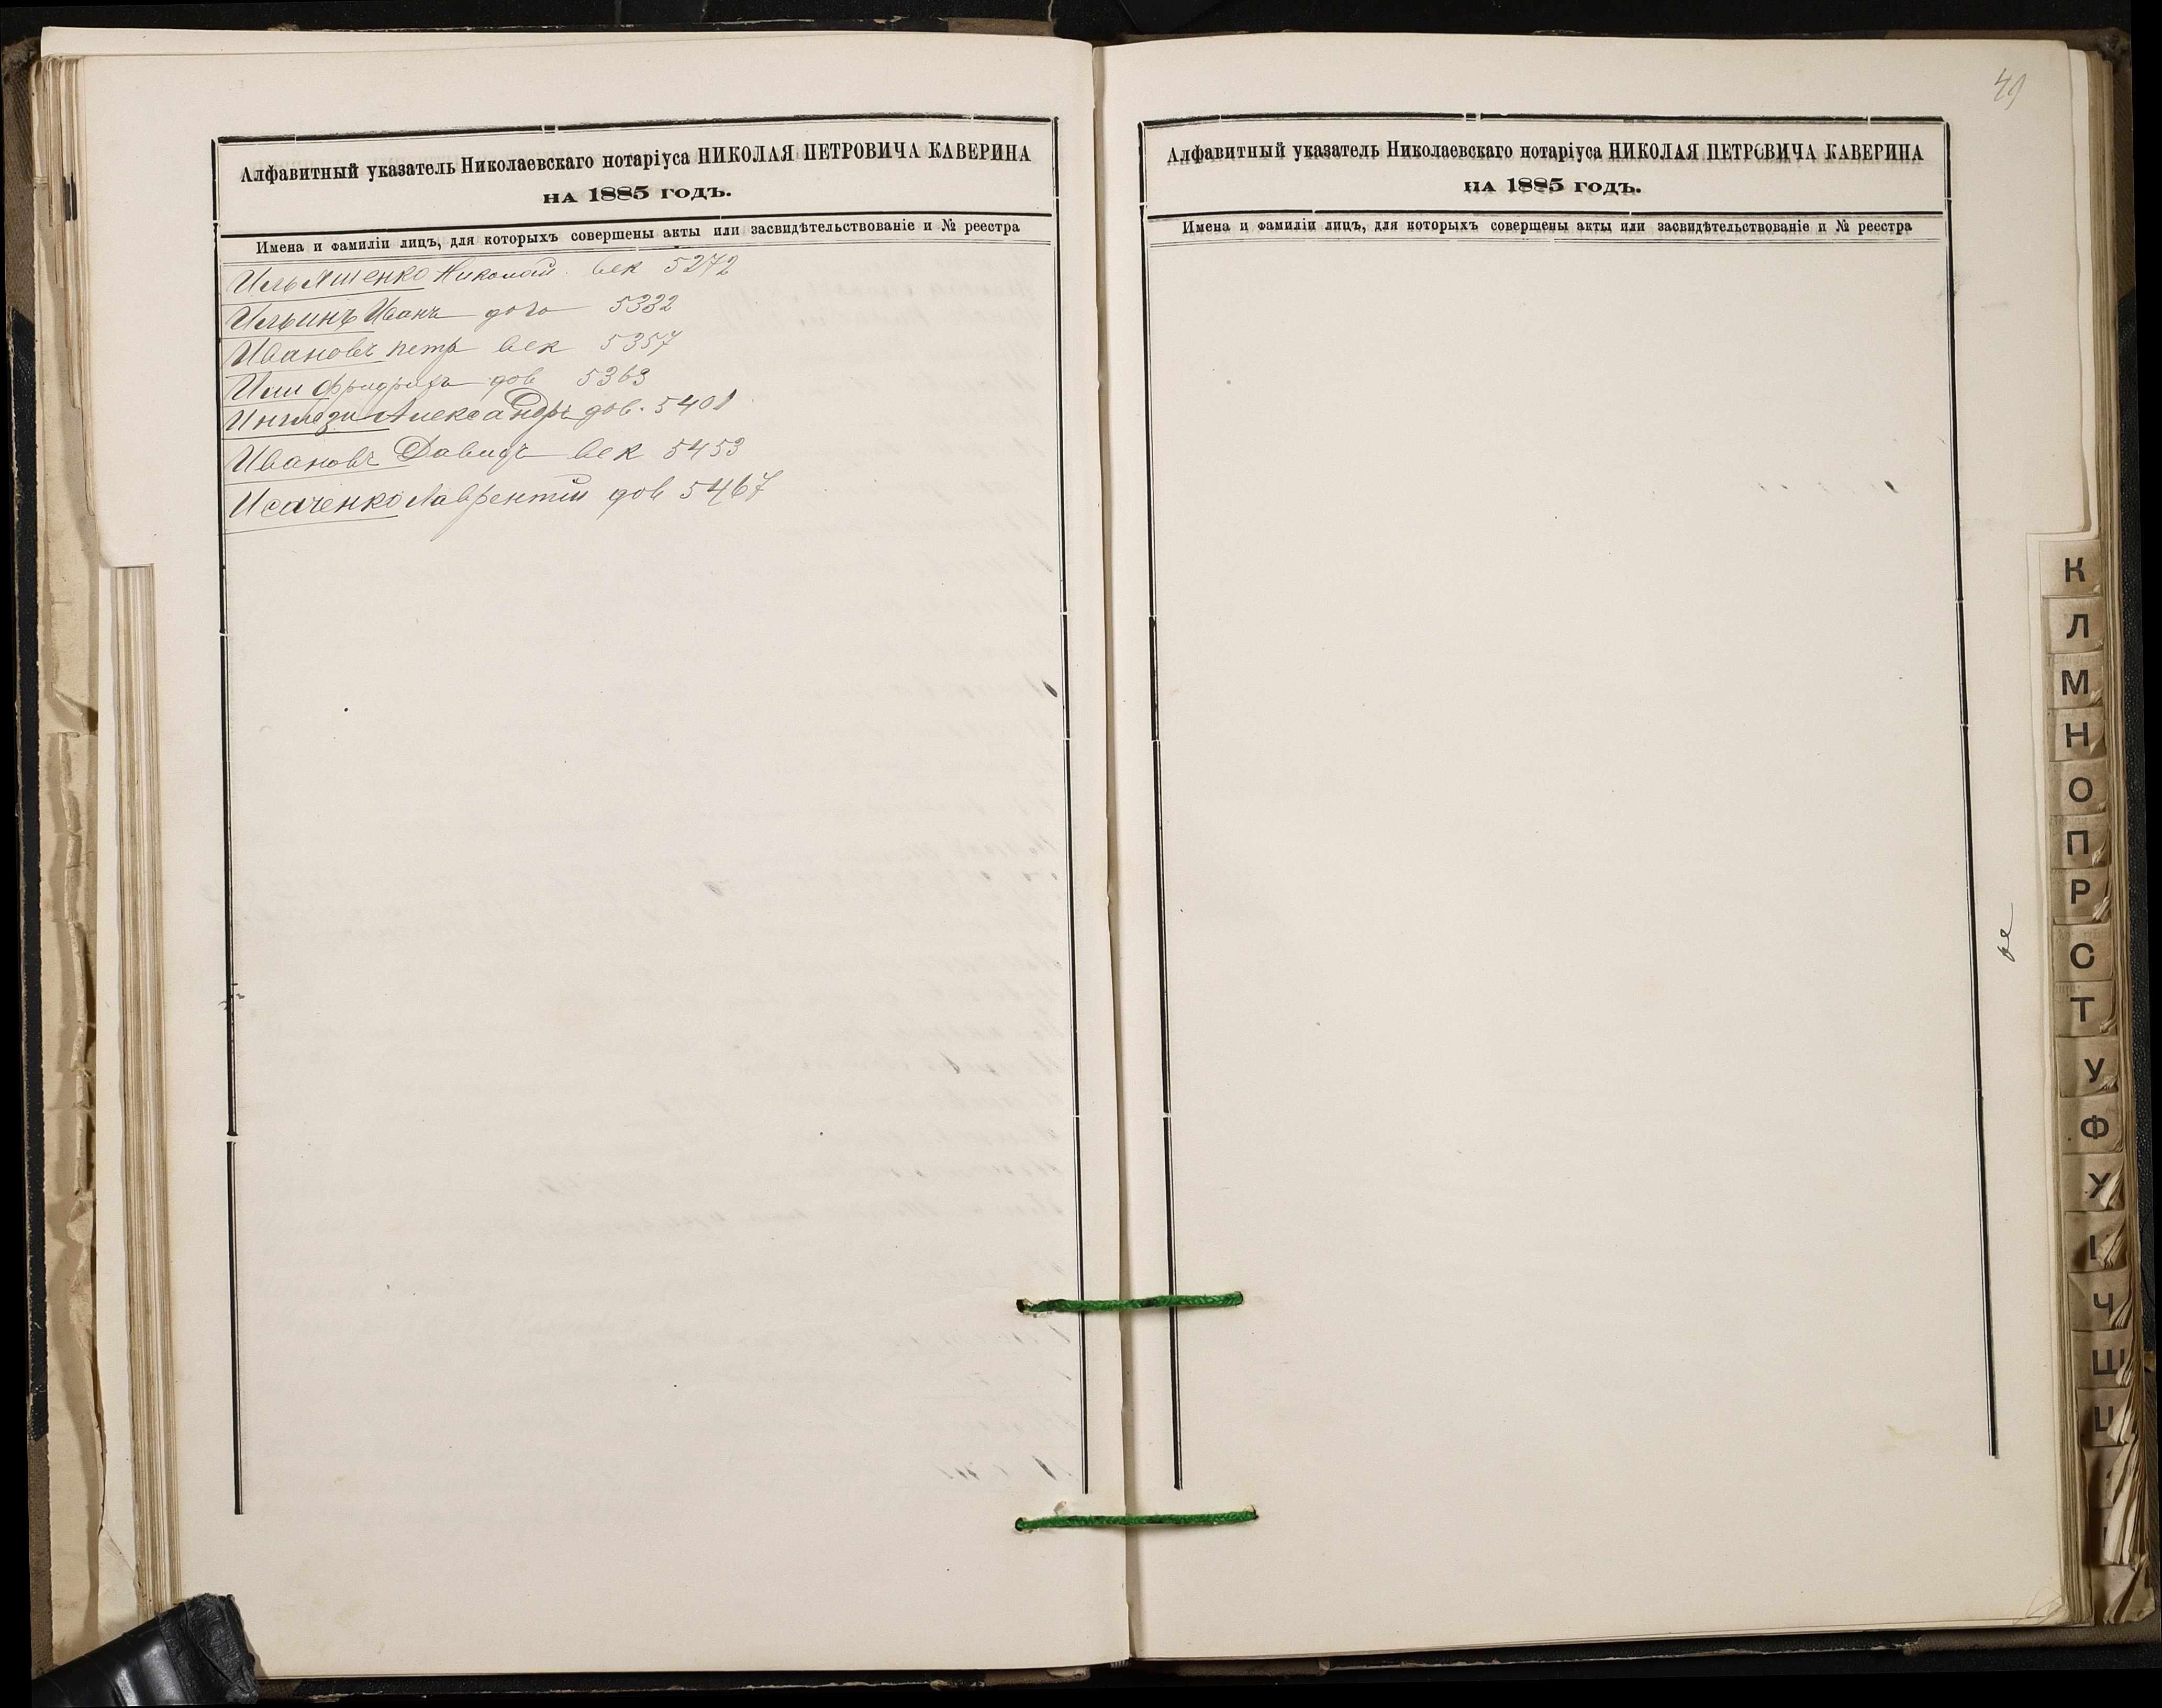 Алфавитный указатель Николаевскаго нотаріуса НИКОЛАЯ ПЕТРОВИЧА КАВЕРИНА
НА 1885 ГОДЪ.
Имена и фамиліи лицъ, для которыхъ совершены акты или засвидѣтельствованіе и № реестра
Ильяшенко Николай век 5272
Ильинъ Иванъ дого 5332
Ивановъ Петр век 5357
Фридриха дов 5363
Инглези Александръ дов. 5401
Ивановъ Давидъ век 5453
Исаченко Лаврентій дов 5467
49
Алфавитный указатель Николаевскаго нотаріуса НИКОЛАЯ ПЕТРОВИЧА КАВЕРИНА
НА 1885 ГОДЪ.
Имена и фамиліи лицъ, для которыхъ совершены акты или засвидѣтельствованіе и № реестра
К
Л
М
Н
О
П
Р
С
Т
У
Ф
Х
Ч
Ш